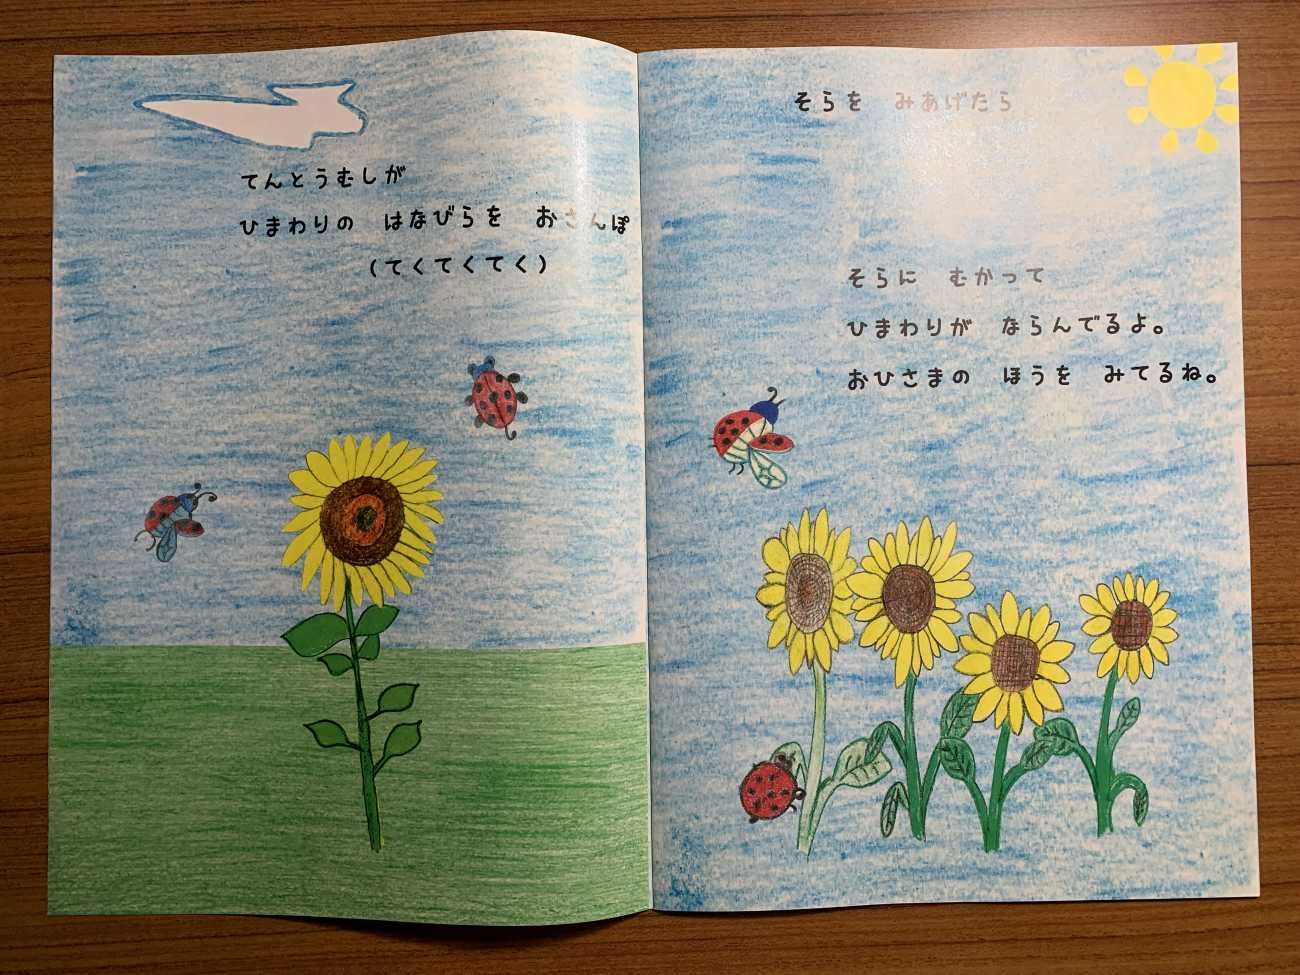 てんとうむしが
ひまわりの　はなびらを　おさんぽ
(てくてくてく)
そらを　みあげたら
そらに　むかって
ひまわりが　ならんでるよ。
おひさまの　ほうを　みてるね。